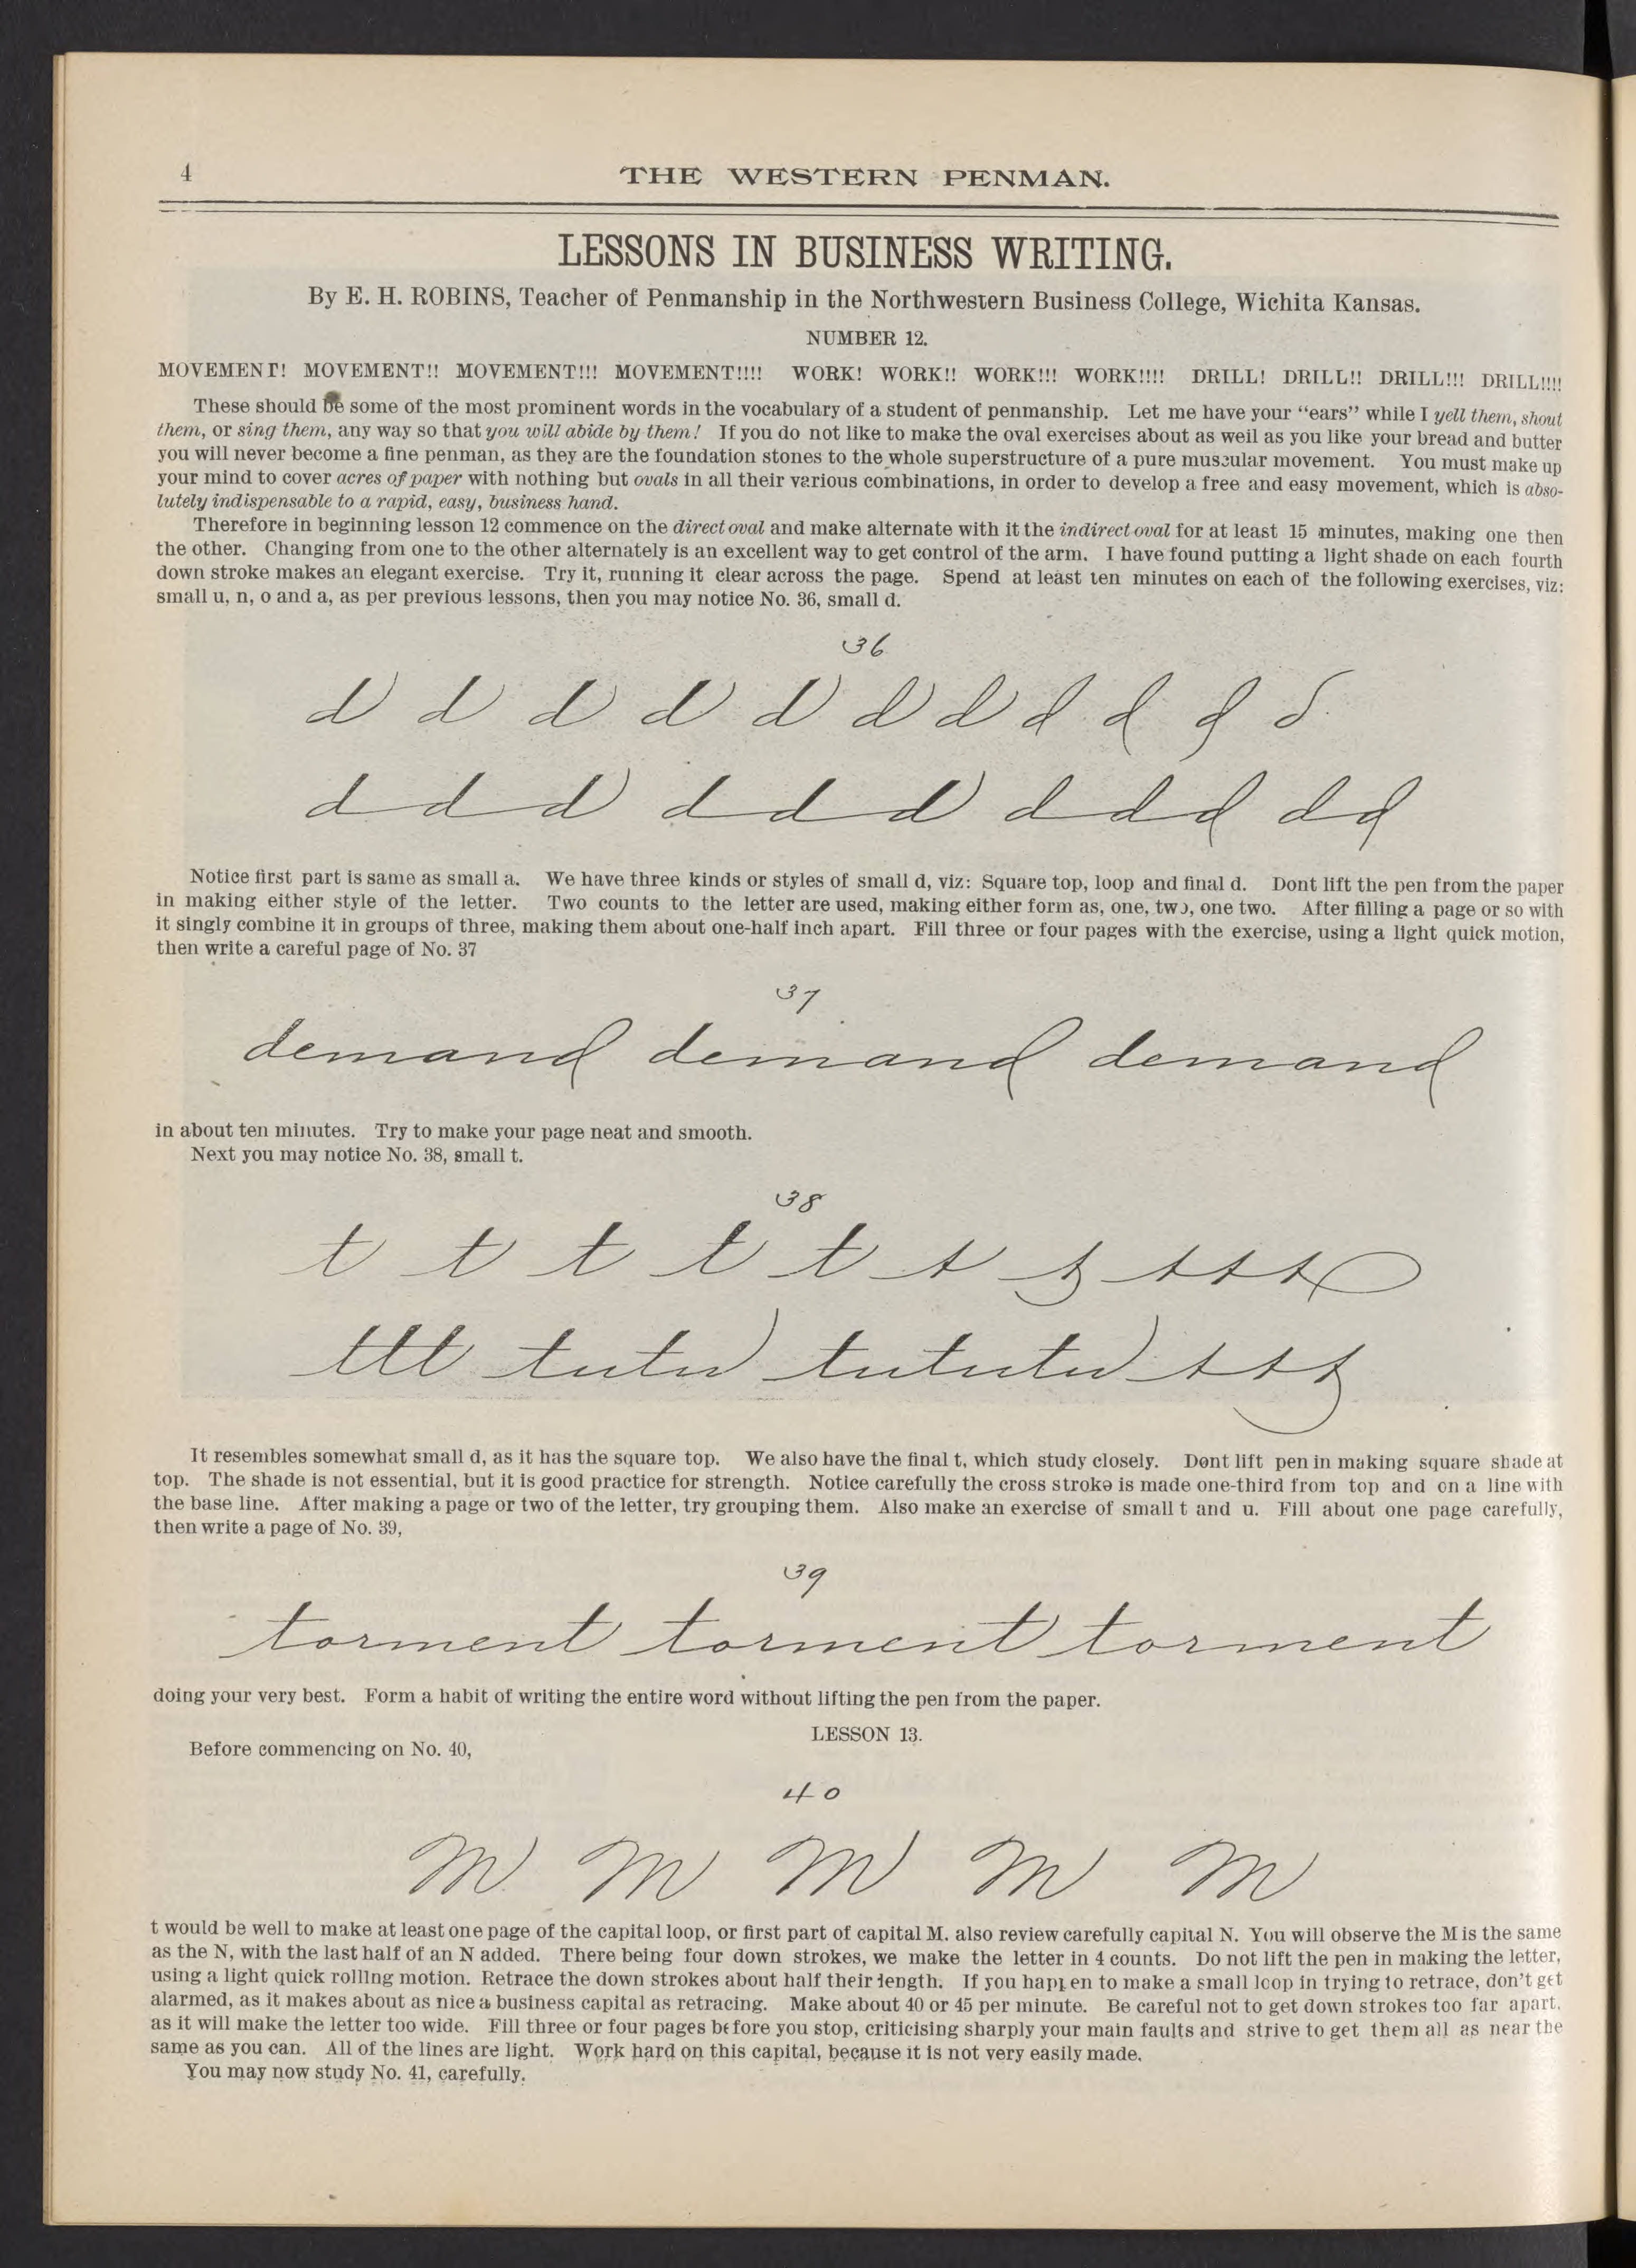 4
THE WESTERN PENMAN.
LESSONS IN BUSINESS WRITING.
By E. H. ROBINS, Teacher of Penmanship in the Northwestern Business College, Wichita Kansas.
NUMBER 12.
MOVEMENT! MOVEMENT!! MOVEMENT!!! MOVEMENT!!!! WORK! WORK!! WORK!!! WORK!!!! DRILL! DRILL!! DRILL!!! DRILL!!!!
These should be some of the most prominent words in the vocabulary of a student of penmanship. Let me have your "ears" while I yell them, shout
them, or sing them, any way so that you will abide by them! If you do not like to make the oval exercises about as well as you like your bread and butter
you will never become a fine penman, as they are the foundation stones to the whole superstructure of a pure muscular movement. You must make up
your mind to cover acres of paper with nothing but ovals in all their various combinations, in order to develop a free and easy movement, which is abso-
lutely indispensable to a rapid, easy, business hand.
Therefore in beginning lesson 12 commence on the direct oval and make alternate with it the indirect oval for at least 15 minutes, making one then
the other. Changing from one to the other alternately is an excellent way to get control of the arm. I have found putting a light shade on each fourth
down stroke makes an elegant exercise. Try it, running it clear across the page. Spend at least ten minutes on each of the following exercises, viz:
small u, n, o and a, as per previous lessons, then you may notice No. 36, small d.
36
d d d d d d d d d d d
d d d d d d d d d d d
Notice first part is same as small a. We have three kinds or styles of small d, viz: Square top, loop and final d. Dont lift the pen from the paper
in making either style of the letter. Two counts to the letter are used, making either form as, one, two, one two. After filling a page or so with
it singly combine it in groups of three, making them about one-half inch apart. Fill three or four pages with the exercise, using a light quick motion,
then write a careful page of No. 37
37
demand demand demand
in about ten minutes. Try to make your page neat and smooth.
Next you may notice No. 38, small t.
38
t t t t t t t t t t
ttt tutu tututu ttt
It resembles somewhat small d, as it has the square top. We also have the final t, which study closely. Dont lift pen in making square shade at
top. The shade is not essential, but it is good practice for strength. Notice carefully the cross stroke is made one-third from top and on a line with
the base line. After making a page or two of the letter, try grouping them. Also make an exercise of small t and u. Fill about one page carefully,
then write a page of No. 39,
39
torment torment torment
doing your very best. Form a habit of writing the entire word without lifting the pen from the paper.
LESSON 13.
Before commencing on No. 40,
40
M M M M M
t would be well to make at least one page of the capital loop, or first part of capital M. also review carefully capital N. You will observe the M is the same
as the N, with the last half of an N added. There being four down strokes, we make the letter in 4 counts. Do not lift the pen in making the letter,
using a light quick rolling motion. Retrace the down strokes about half their length. If you happen to make a small loop in trying to retrace, don't get
alarmed, as it makes about as nice a business capital as retracing. Make about 40 or 45 per minute. Be careful not to get down strokes too far apart,
as it will make the letter too wide. Fill three or four pages before you stop, criticising sharply your main faults and strive to get them all as near the
same as you can. All of the lines are light. Work hard on this capital, because it is not very easily made.
You may now study No. 41, carefully.